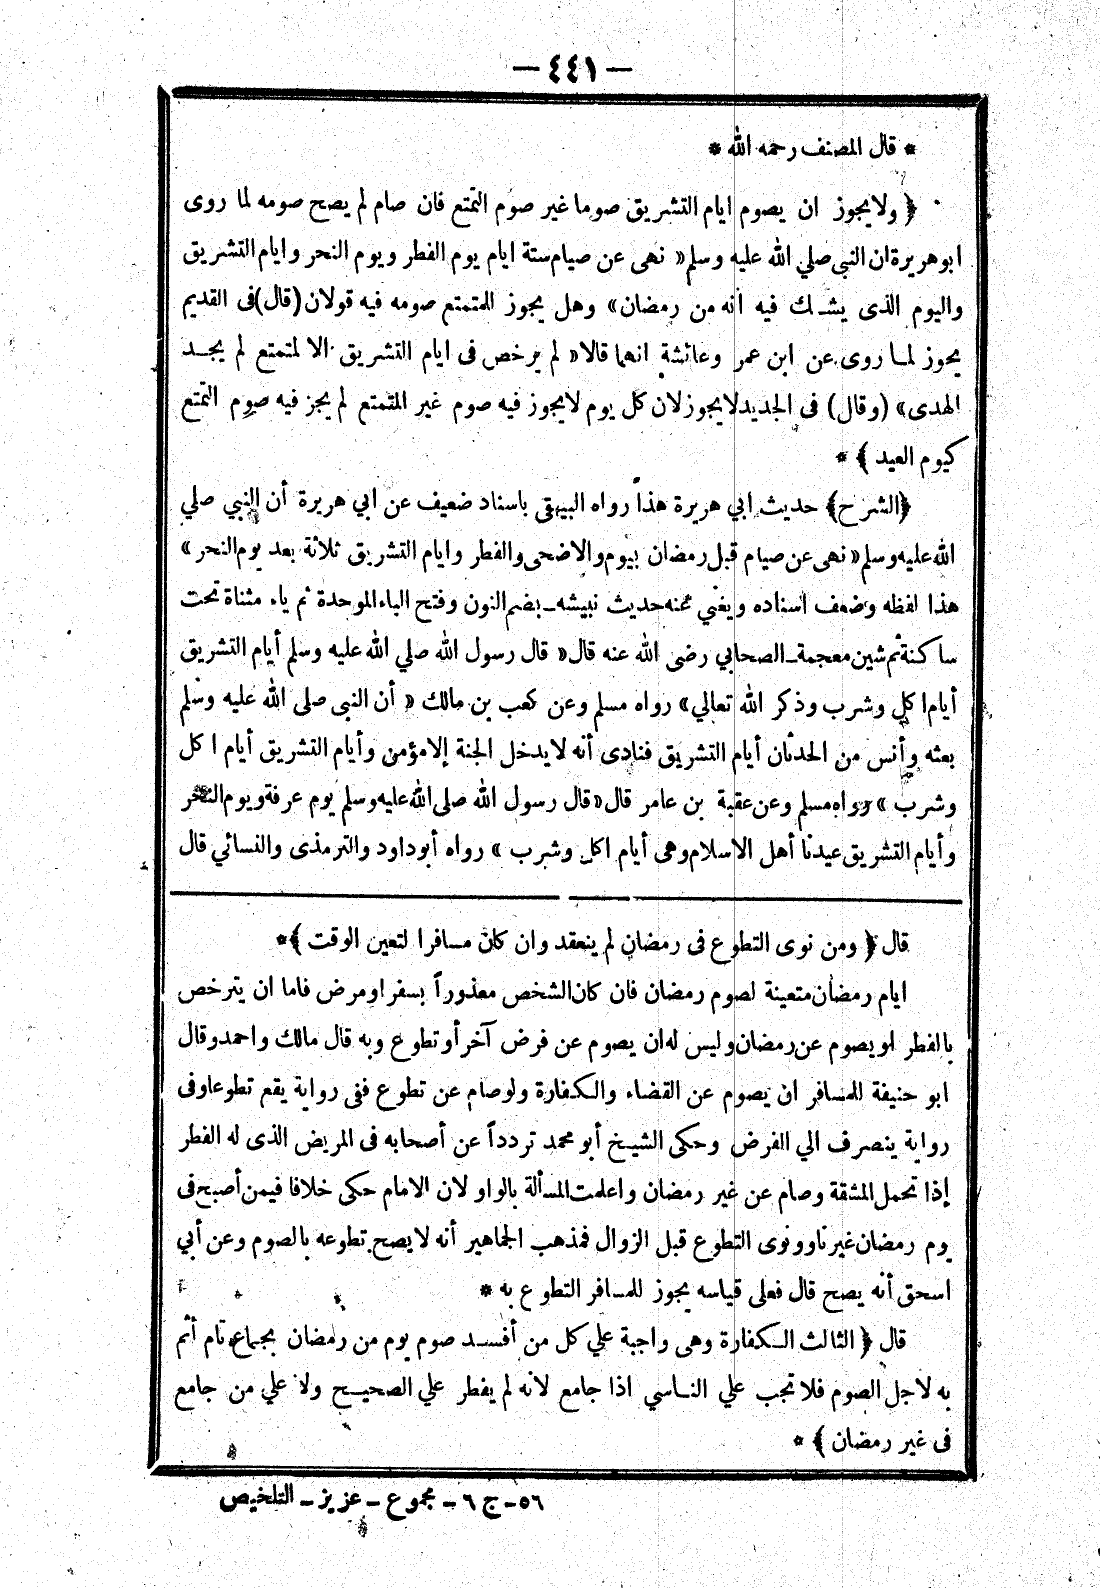 — ٤٤١ —
* قال المصنف رحمه الله *
﴿ ولا يجوز ان يصوم ايام التشريق صوما غير صوم التمتع فان صام لم يصح صومه لما روى
ابو هريرة ان النبي صلي الله عليه وسلم « نهى عن صيام ستة ايام يوم الفطر ويوم النحر وايام التشريق
واليوم الذى يشك فيه أنه من رمضان » وهل يجوز للمتمتع صومه فيه قولان (قال) فى القديم
يجوز لما روى عن ابن عمر وعائشة انهما قالا « لم يرخص فى ايام التشريق الا لمتمتع لم يجد
الهدى » (وقال) فى الجديد لا يجوز لان كل يوم لا يجوز فيه صوم غير المتمتع لم يجز فيه صوم التمتع
كيوم العيد ﴾ *
﴿الشرح﴾ حديث ابي هريرة هذا رواه البيهقى باسناد ضعيف عن ابي هريرة أن النبي صلي
الله عليه وسلم « نهى عن صيام قبل رمضان بيوم والاضحى والفطر وايام التشريق ثلاثة بعد يوم النحر »
هذا لفظه وضعف اسناده ويغني عنه حديث نبيشه ـ بضم النون وفتح الباء الموحدة ثم ياء مثناة تحت
ساكنة ثم شين معجمة ـ الصحابي رضى الله عنه قال « قال رسول الله صلي الله عليه وسلم أيام التشريق
أيام اكل وشرب وذكر الله تعالي » رواه مسلم وعن كعب بن مالك « أن النبى صلى الله عليه وسلم
بعثه وأنس من الحدثان أيام التشريق فنادى أنه لا يدخل الجنة إلا مؤمن وأيام التشريق أيام اكل
وشرب » رواه مسلم وعن عقبة بن عامر قال « قال رسول الله صلى الله عليه وسلم يوم عرفة ويوم النحر
وأيام التشريق عيدنا أهل الاسلام وهى أيام اكل وشرب » رواه أبو داود والترمذى والنسائي قال
قال ﴿ ومن نوى التطوع فى رمضان لم ينعقد وان كان مسافرا لتعين الوقت ﴾ *
ايام رمضان متعينة لصوم رمضان فان كان الشخص معذوراً بسفر او مرض فاما ان يترخص
بالفطر او يصوم عن رمضان وليس له ان يصوم عن فرض آخر أو تطوع وبه قال مالك واحمد وقال
ابو حنيفة للمسافر ان يصوم عن القضاء والكفارة ولو صام عن تطوع ففى رواية يقع تطوعا وفى
رواية ينصرف الي الفرض وحكى الشيخ أبو محمد تردداً عن أصحابه فى المريض الذى له الفطر
إذا تحمل المشقة وصام عن غير رمضان واعلمت المسألة بالواو لان الامام حكى خلافا فيمن أصبح فى
يوم رمضان غير ناو ونوى التطوع قبل الزوال فمذهب الجماهير أنه لا يصح تطوعه بالصوم وعن أبي
اسحق أنه يصح قال فعلى قياسه يجوز للمسافر التطوع به *
قال ﴿ الثالث الكفارة وهى واجبة علي كل من أفسد صوم يوم من رمضان بجماع تام أثم
به لاجل الصوم فلا تجب علي الناسي اذا جامع لانه لم يفطر علي الصحيح ولا علي من جامع
فى غير رمضان ﴾ *
٥٦ ـ ج ٦ ـ مجموع ـ عزيز ـ التلخيص